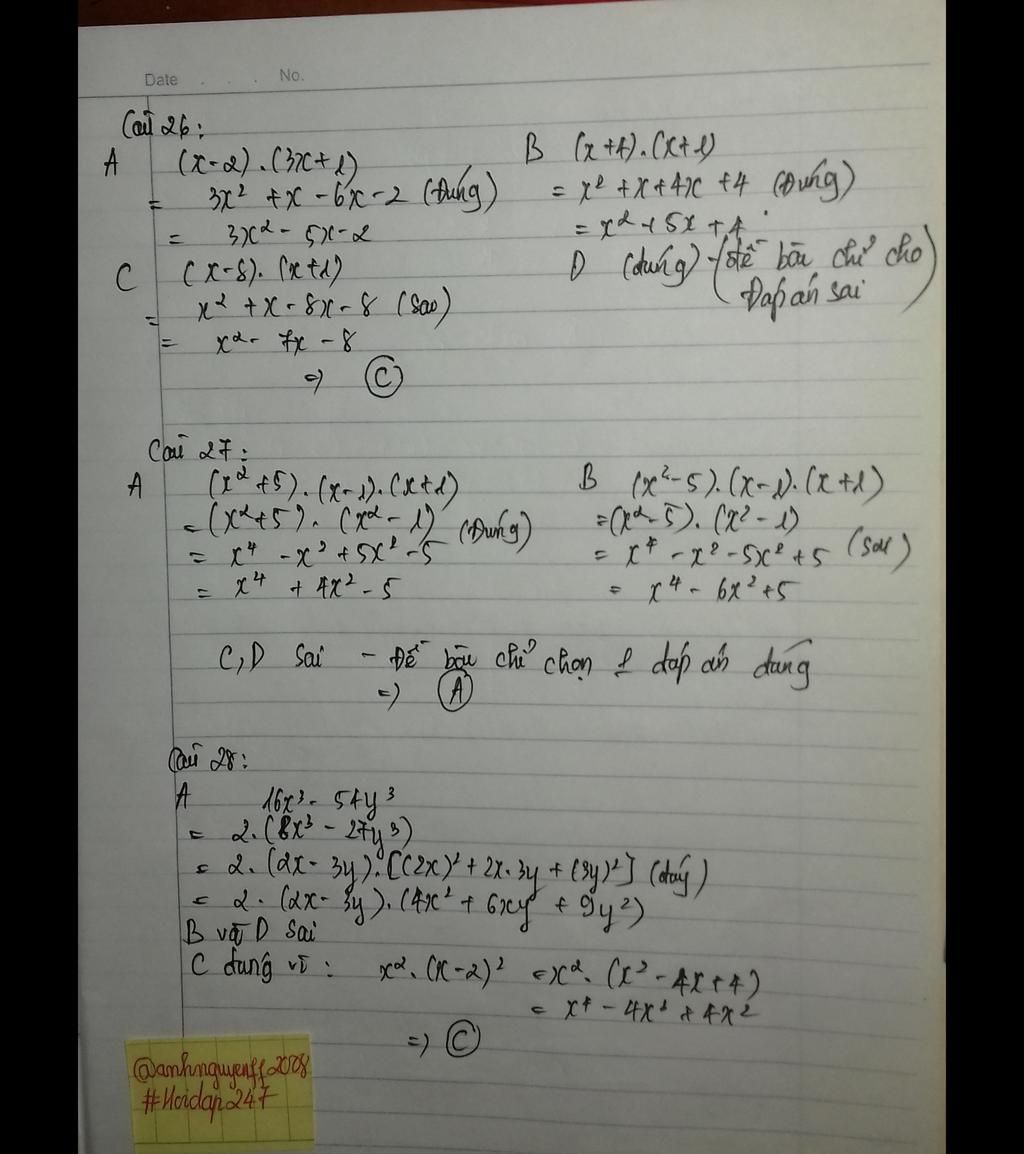 Date . . . No.
Câu 26:
A (x-2).(3x+1)
= 3x² + x - 6x - 2 (Đúng)
= 3x² - 5x - 2
B (x+4).(x+1)
= x² + x + 4x + 4 (Đúng)
= x² + 5x + 4
C (x-8).(x+1)
= x² + x - 8x - 8 (Sai)
= x² - 7x - 8
=> C
D (đúng) - (đề bài chỉ cho
Đáp án sai)
Câu 27:
A (x²+5).(x-1).(x+1)
= (x²+5).(x²-1) (Đúng)
= x⁴ - x² + 5x² - 5
= x⁴ + 4x² - 5
B (x²-5).(x-1).(x+1)
= (x²-5).(x²-1)
= x⁴ - x² - 5x² + 5 (Sai)
= x⁴ - 6x² + 5
C, D Sai - Đề bài chỉ chọn 1 đáp án đúng
=> A
Câu 28:
A 16x³ - 54y³
= 2.(8x³ - 27y³)
= 2.(2x - 3y).[(2x)² + 2x.3y + (3y)²] (đúng)
= 2.(2x-3y).(4x² + 6xy + 9y²)
B và D Sai
C đúng vì: x².(x-2)² = x².(x² - 4x + 4)
= x⁴ - 4x³ + 4x²
=> C
@anhnguyenff2008
#Hoidap247